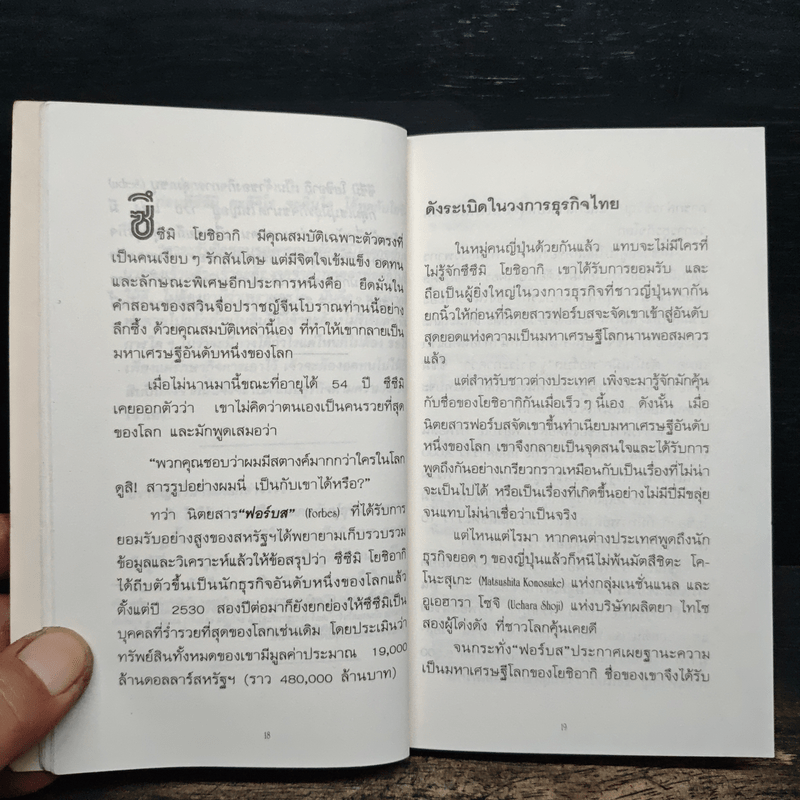 ซึซึมิ โยชิอากิ มีคุณสมบัติเฉพาะตัวตรงที่
เป็นคนเงียบ ๆ รักสันโดษ แต่มีจิตใจเข้มแข็ง อดทน
และลักษณะพิเศษอีกประการหนึ่งคือ ยึดมั่นใน
คำสอนของสวินจื่อปราชญ์จีนโบราณท่านนี้อย่าง
ลึกซึ้ง ด้วยคุณสมบัติเหล่านี้เอง ที่ทำให้เขากลายเป็น
มหาเศรษฐีอันดับหนึ่งของโลก
เมื่อไม่นานมานี้ขณะที่อายุได้ 54 ปี ซึซึมิ
เคยออกตัวว่า เขาไม่คิดว่าตนเองเป็นคนรวยที่สุด
ของโลก และมักพูดเสมอว่า
“พวกคุณชอบว่าผมมีสตางค์มากกว่าใครในโลก
ดูสิ! สารรูปอย่างผมนี่ เป็นกับเขาได้หรือ?”
ทว่า นิตยสาร“ฟอร์บส” (Forbes) ที่ได้รับการ
ยอมรับอย่างสูงของสหรัฐฯได้พยายามเก็บรวบรวม
ข้อมูลและวิเคราะห์แล้วให้ข้อสรุปว่า ซึซึมิ โยชิอากิ
ได้ถีบตัวขึ้นเป็นนักธุรกิจอันดับหนึ่งของโลกแล้ว
ตั้งแต่ปี 2530 สองปีต่อมาก็ยังยกย่องให้ซึซึมิเป็น
บุคคลที่ร่ำรวยที่สุดของโลกเช่นเดิม โดยประเมินว่า
ทรัพย์สินทั้งหมดของเขามีมูลค่าประมาณ 19,000
ล้านดอลลาร์สหรัฐฯ (ราว 480,000 ล้านบาท)
18
ดังระเบิดในวงการธุรกิจไทย
ในหมู่คนญี่ปุ่นด้วยกันแล้ว แทบจะไม่มีใครที่
ไม่รู้จักซึซึมิ โยชิอากิ เขาได้รับการยอมรับ และ
ถือเป็นผู้ยิ่งใหญ่ในวงการธุรกิจที่ชาวญี่ปุ่นพากัน
ยกนิ้วให้ก่อนที่นิตยสารฟอร์บสจะจัดเขาเข้าสู่อันดับ
สุดยอดแห่งความเป็นมหาเศรษฐีโลกนานพอสมควร
แล้ว
แต่สำหรับชาวต่างประเทศ เพิ่งจะมารู้จักมักคุ้น
กับชื่อของโยชิอากิกันเมื่อเร็ว ๆ นี้เอง ดังนั้น เมื่อ
นิตยสารฟอร์บสจัดเขาขึ้นทำเนียบมหาเศรษฐีอันดับ
หนึ่งของโลก เขาจึงกลายเป็นจุดสนใจและได้รับการ
พูดถึงกันอย่างเกรียวกราวเหมือนกับเป็นเรื่องที่ไม่น่า
จะเป็นไปได้ หรือเป็นเรื่องที่เกิดขึ้นอย่างไม่มีปี่มีขลุ่ย
จนแทบไม่น่าเชื่อว่าเป็นจริง
แต่ไหนแต่ไรมา หากคนต่างประเทศพูดถึงนัก
ธุรกิจยอด ๆ ของญี่ปุ่นแล้วก็หนีไม่พ้นมัตสึชิตะ โค-
โนะสุเกะ (Matsushita Konosuke) แห่งกลุ่มเนชั่นแนล และ
อูเอฮารา โซจิ (Uehara Shoji) แห่งบริษัทผลิตยา ไทโช
สองผู้โด่งดัง ที่ชาวโลกคุ้นเคยดี
จนกระทั่ง“ฟอร์บส”ประกาศเผยฐานะความ
เป็นมหาเศรษฐีโลกของโยชิอากิ ชื่อของเขาจึงได้รับ
19